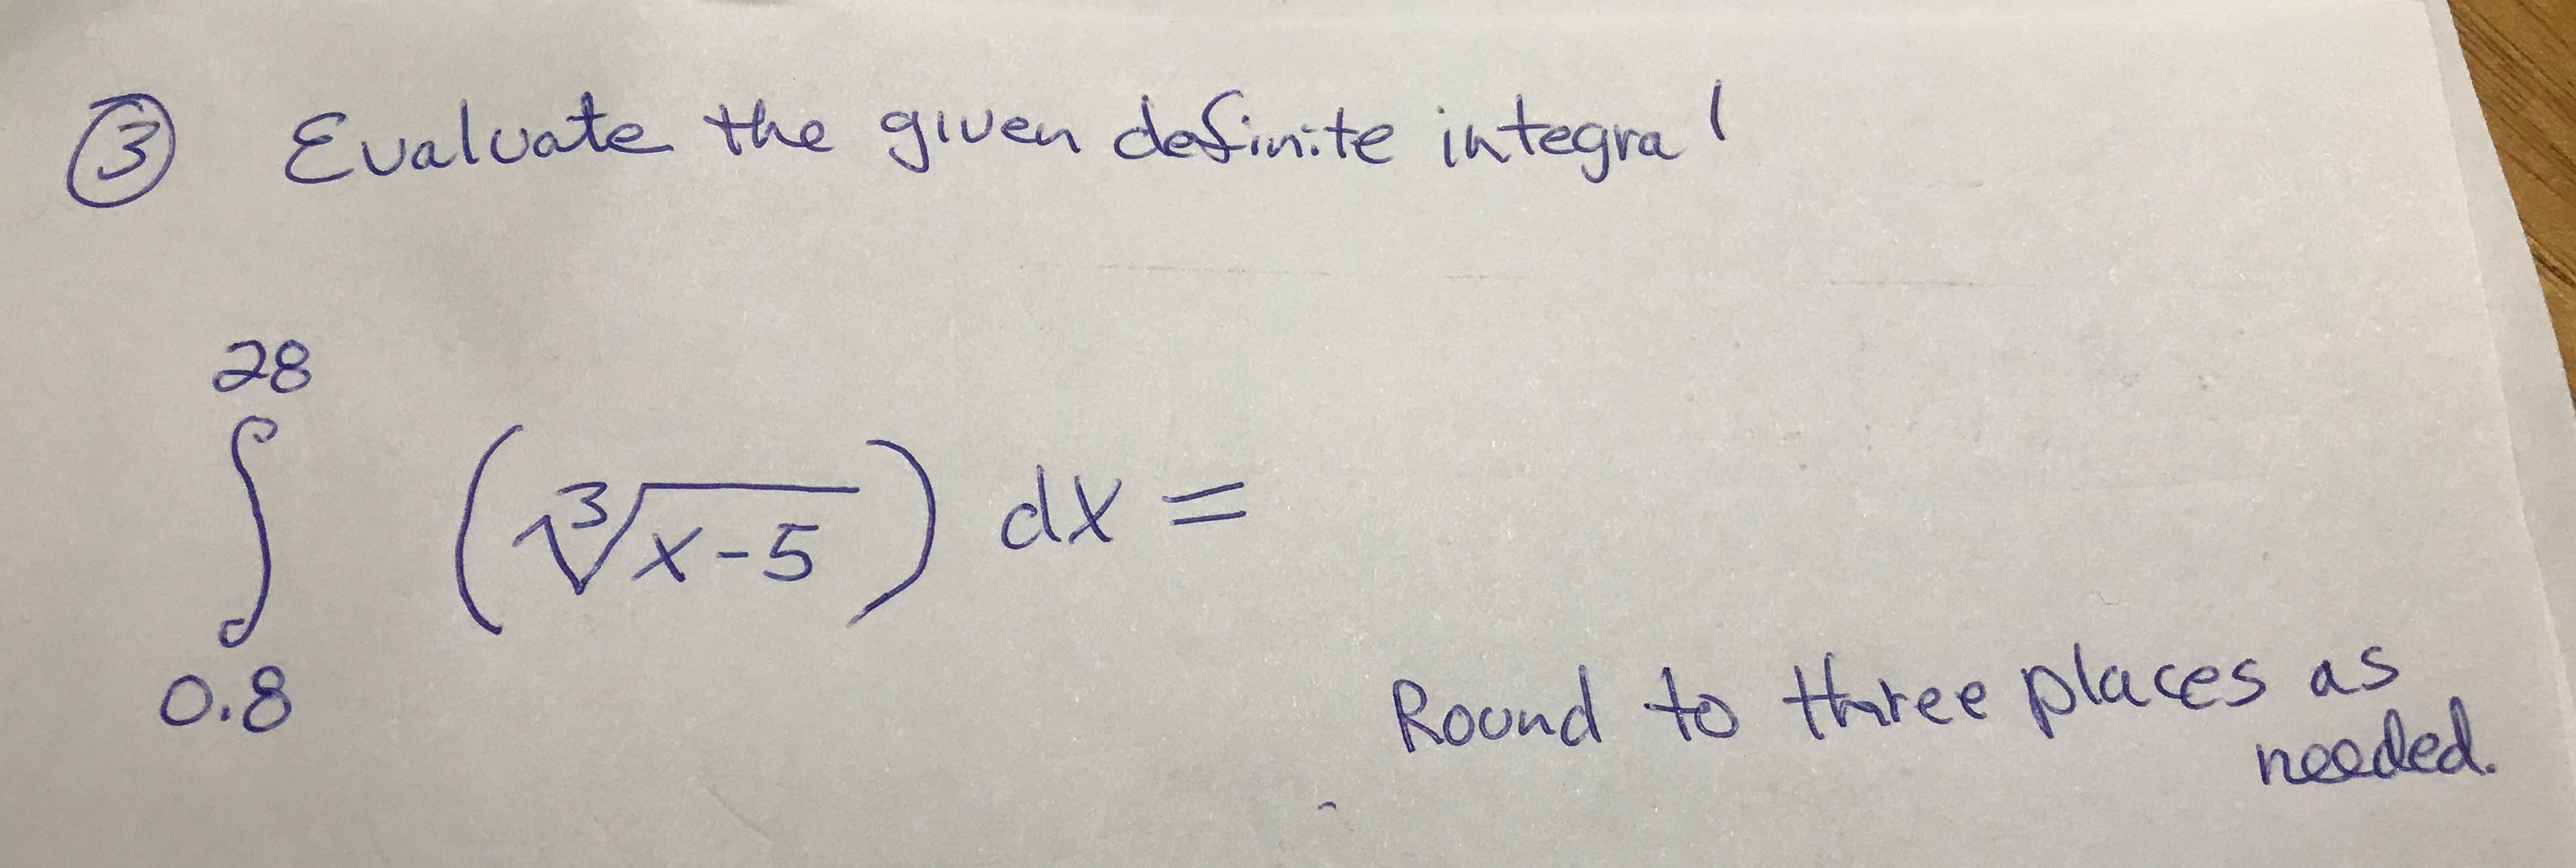 ③ Evaluate the given definite integral
28
∫ (∛x-5) dx =
0.8
Round to three places as
needed.